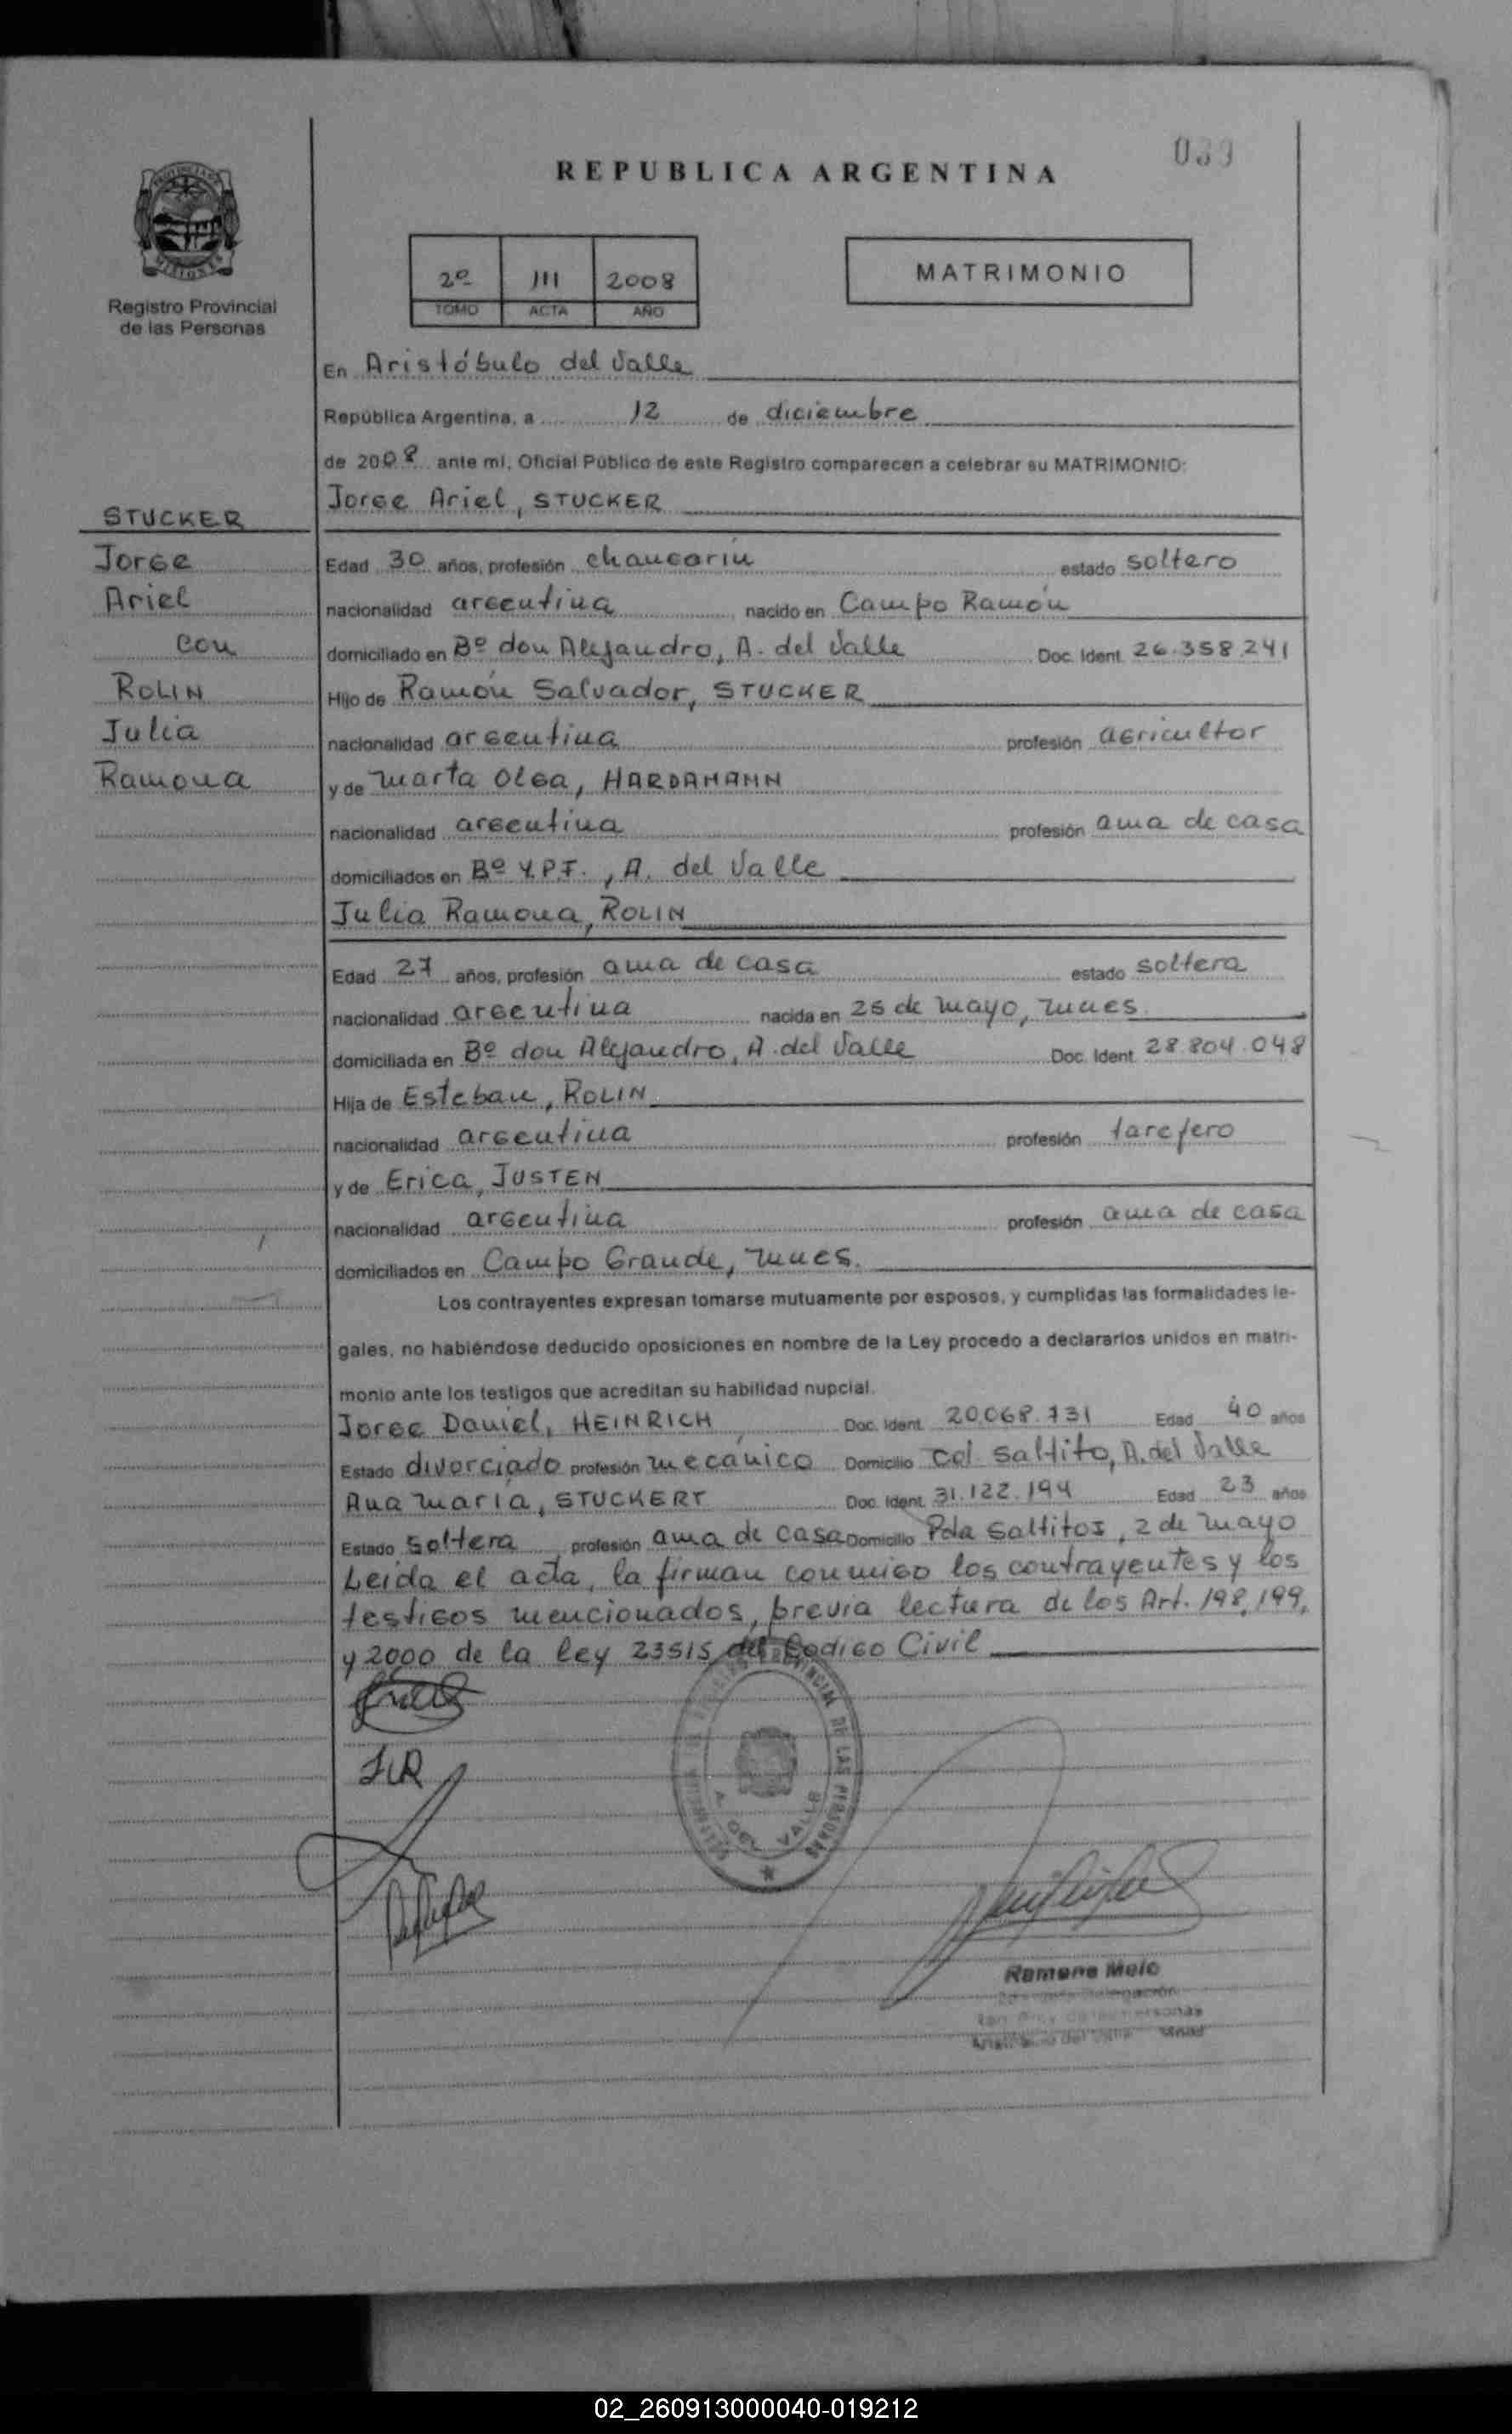 039
REPUBLICA ARGENTINA
Registro Provincial
de las Personas
2º 111 2008
TOMO ACTA AÑO
MATRIMONIO
En Aristóbulo del Valle
República Argentina, a 12 de diciembre
de 2008 ante mi, Oficial Público de este Registro comparecen a celebrar su MATRIMONIO:
Jorge Ariel, STUCKER
STUCKER
Jorge
Ariel
con
ROLIN
Julia
Ramona
Edad 30 años, profesión chaucarin estado soltero
nacionalidad argentina nacido en Campo Ramón
domiciliado en Bº don Alejandro, A. del Valle Doc. Ident. 26.358.241
Hijo de Ramón Salvador, STUCKER
nacionalidad argentina profesión agricultor
y de Marta Olga, HARDAMANN
nacionalidad argentina profesión ama de casa
domiciliados en Bº Y.P.F., A. del Valle
Julia Ramona, ROLIN
Edad 27 años, profesión ama de casa estado soltera
nacionalidad argentina nacida en 25 de Mayo, Mnes.
domiciliada en Bº don Alejandro, A. del Valle Doc. Ident. 28.804.048
Hija de Esteban, ROLIN
nacionalidad argentina profesión tarefero
y de Erica, JUSTEN
nacionalidad argentina profesión ama de casa
domiciliados en Campo Grande, Mnes.
Los contrayentes expresan tomarse mutuamente por esposos, y cumplidas las formalidades le-
gales, no habiéndose deducido oposiciones en nombre de la Ley procedo a declararlos unidos en matri-
monio ante los testigos que acreditan su habilidad nupcial.
Jorge Daniel, HEINRICH Doc. Ident. 20.068.731 Edad 40 años
Estado divorciado profesión mecánico Domicilio Col. Saltito, A. del Valle
Ana María, STUCKERT Doc. Ident. 31.122.194 Edad 23 años
Estado soltera profesión ama de casa Domicilio Pda Saltitos, 2 de Mayo
Leída el acta, la firman conmigo los contrayentes y los
testigos mencionados, previa lectura de los Art. 198, 199,
y 2000 de la ley 23515 del Codigo Civil
JLR
A. DEL VALLE
Ramona Melo
02_260913000040-019212